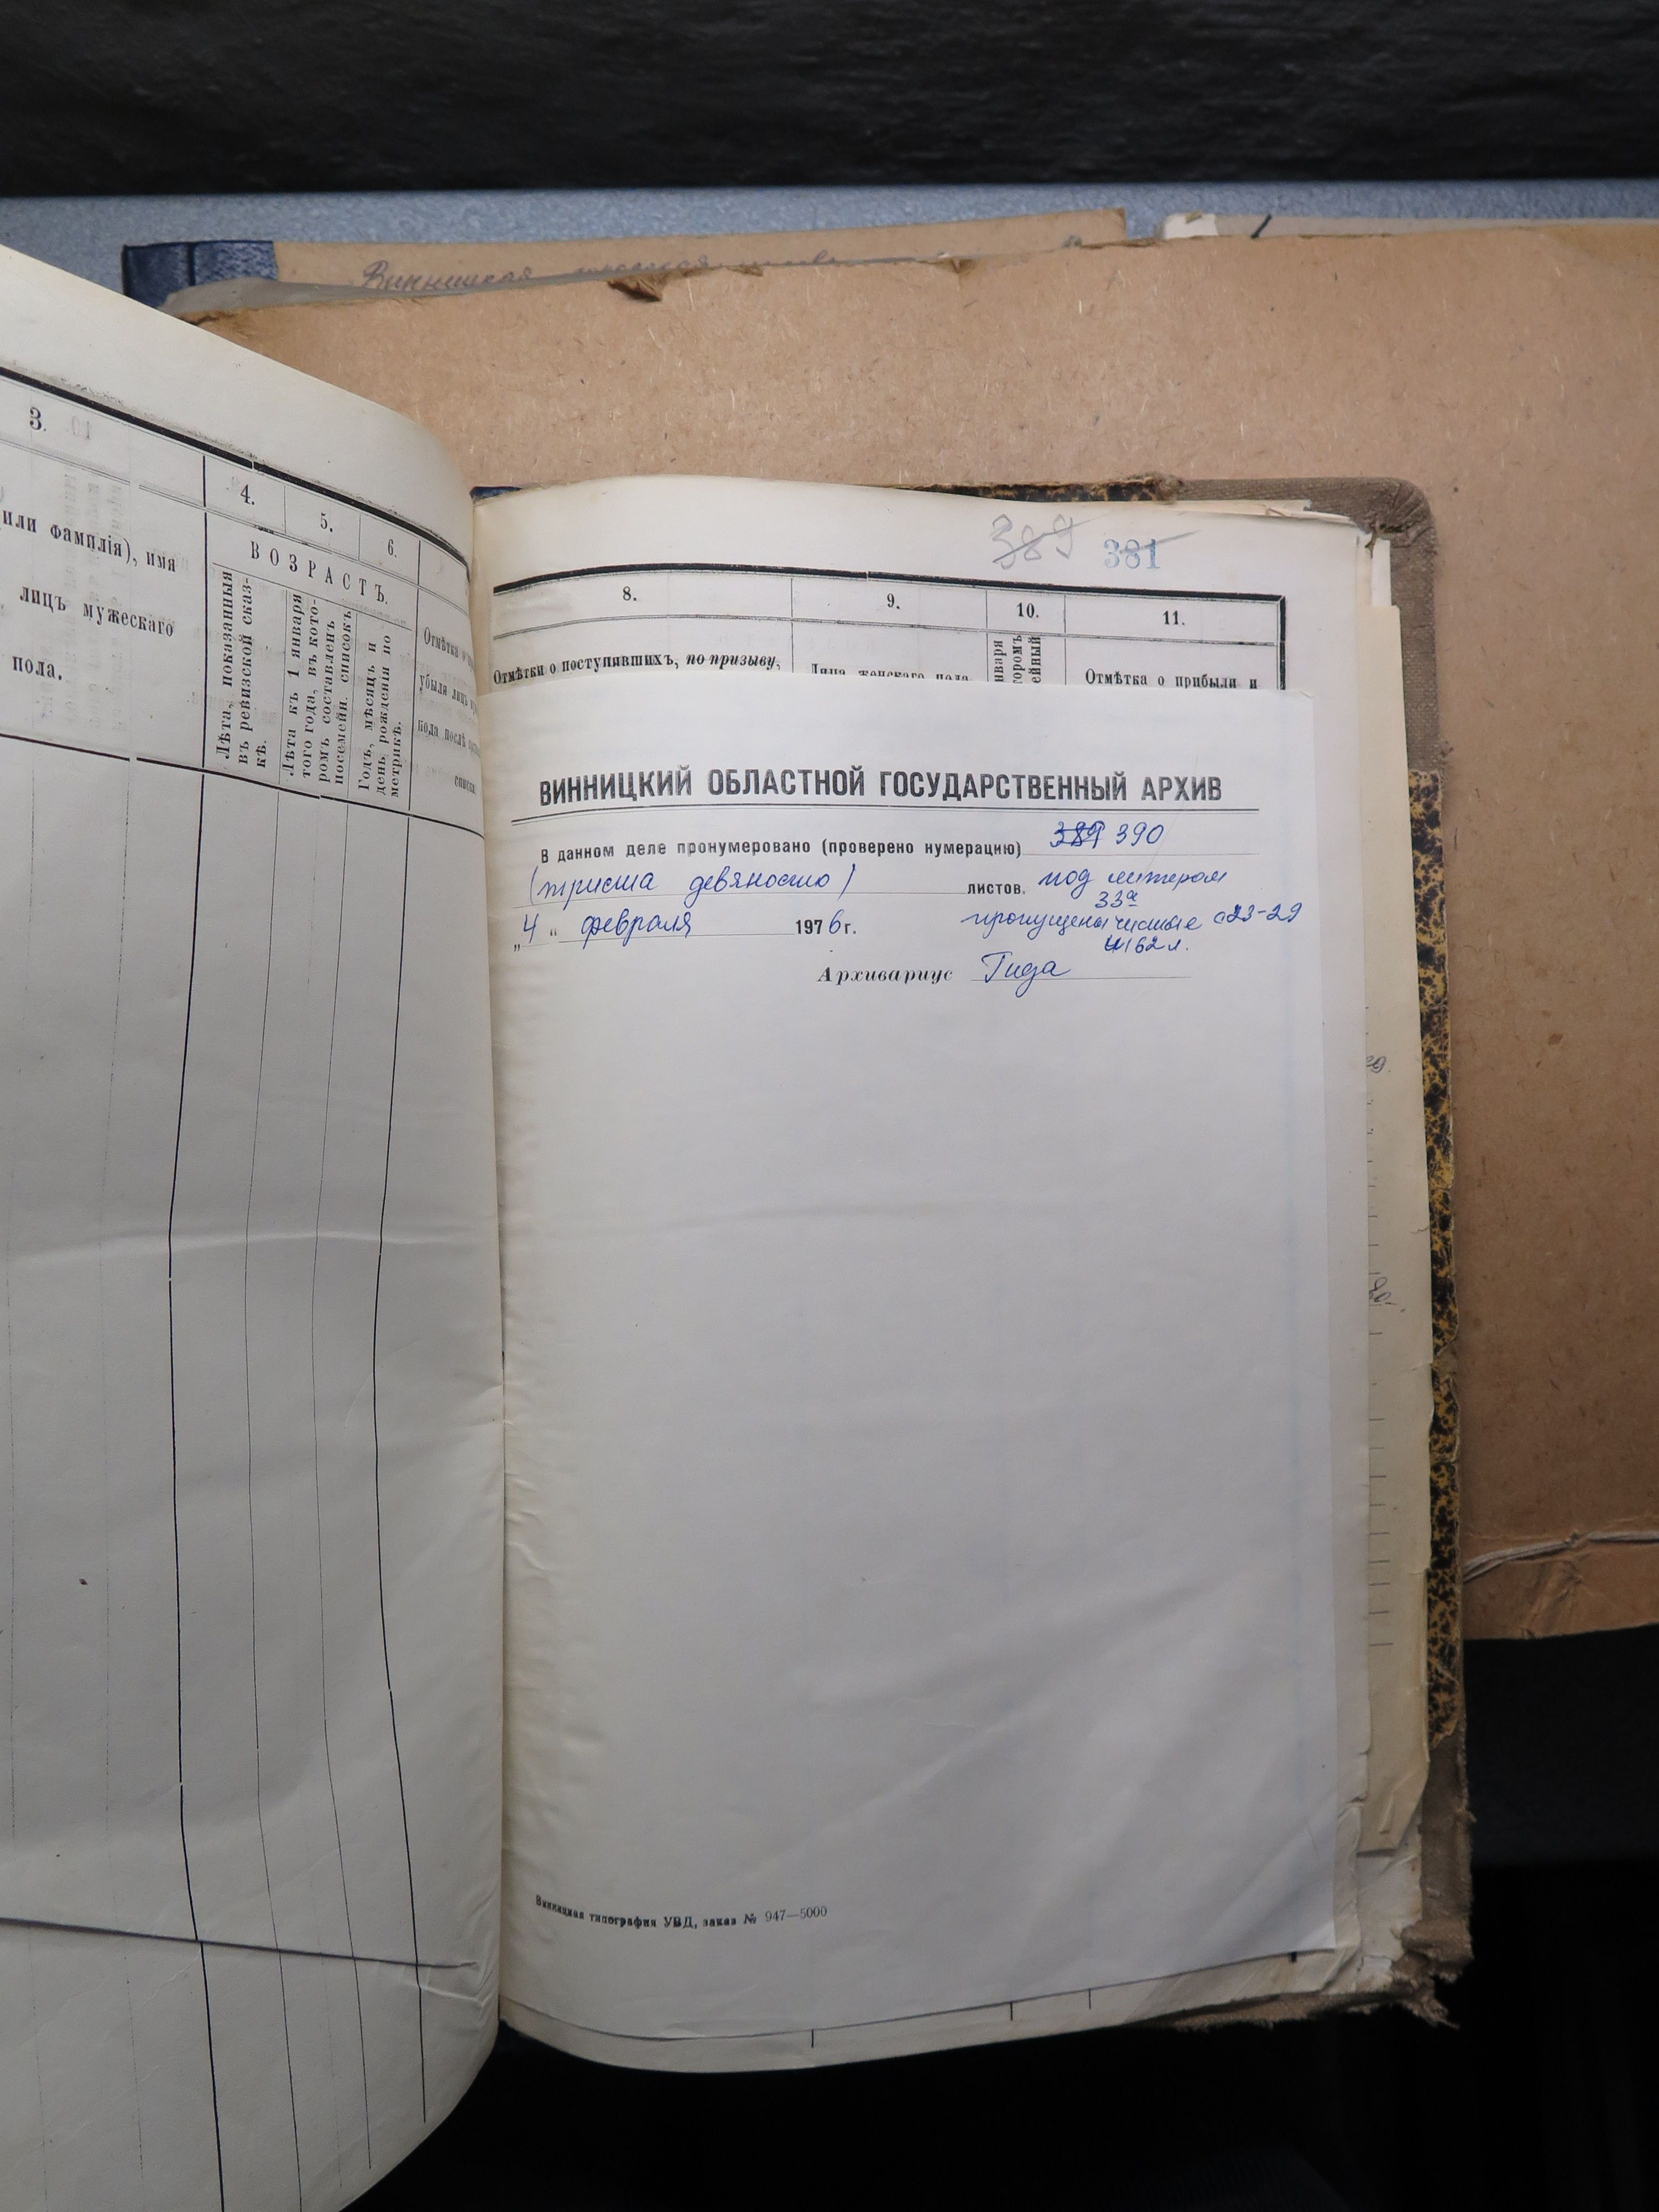 Винницкая
3.
или фамилія), имя
лицъ мужескаго
пола.
4.
5.
6.
ВОЗРАСТЪ.
Лѣта, показанныя
въ ревизской сказ-
кѣ.
Лѣта къ 1 января
того года, въ кото-
ромъ составленъ
посемейн. списокъ
Годъ, мѣсяцъ и
день рожденія по
метрикѣ.
Отмѣтка о
убыли лицъ
пола послѣ
списка.
389 381
8.
9.
10.
11.
Отмѣтки о поступившихъ, по призыву,
Лица женскаго пола
января
торомъ
ейный
Отмѣтка о прибыли и
ВИННИЦКИЙ ОБЛАСТНОЙ ГОСУДАРСТВЕННЫЙ АРХИВ
В данном деле пронумеровано (проверено нумерацию) 389 390
(триста девяносто) листов. под литером
33а
„4“ февраля 1976 г. пропущены чистые с 23-29
и 162 л.
Архивариус Гида
Винницкая типография УВД, заказ № 947—5000